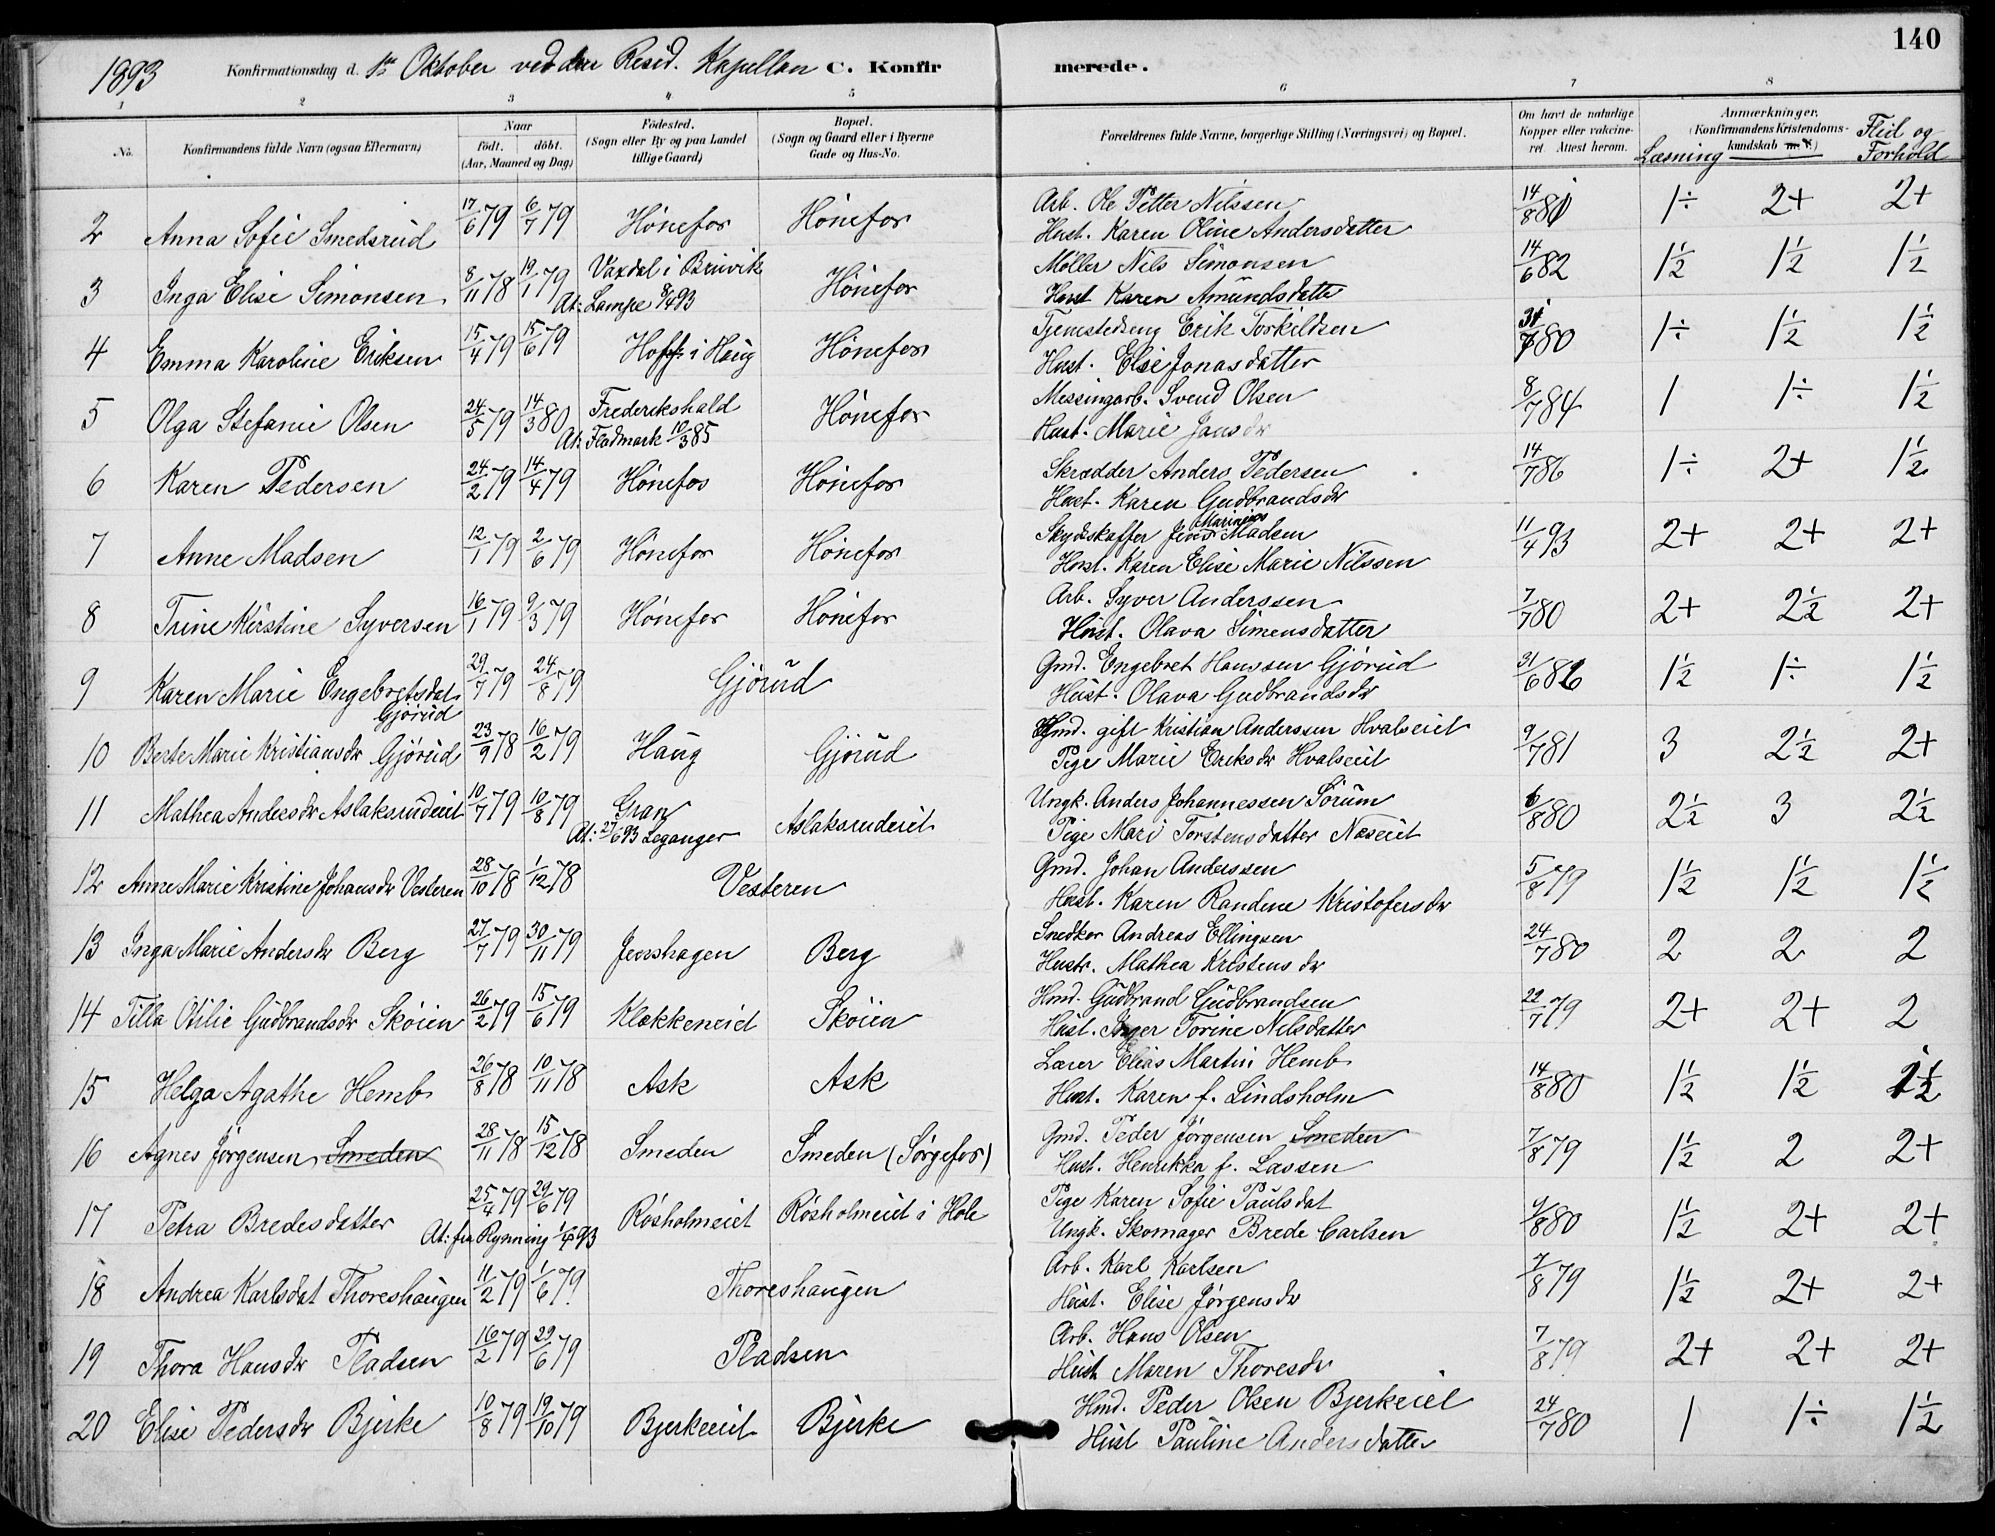 140
1893 Konfirmationsdag d. 1ste Oktober ved den Resid. Kapellan C. Konfirmerede.
1 2 3 4 5 6 7 8
No. Konfirmandens fulde Navn (ogsaa Efternavn) Naar födt. döbt. (Aar, Maaned og Dag) Födested. (Sogn eller By og paa Landet tillige Gaard) Bopæl. (Sogn og Gaard eller i Byerne Gade og Hus-No. Forældrenes fulde Navne, borgerlige Stilling (Næringsvei) og Bopæl. Om havt de naturlige Kopper eller vakcineret. Attest herom. Anmærkninger. (Konfirmandens Kristendomskundskab m. V.) Læsning Flid og Forhold
2 Anna Sofie Smedsrud 17/6 79 6/7 79 Hönefos Hönefos Arb. Ole Petter Nilssen 14/8 81 1÷ 2+ 2+
Hust. Karen Oline Andersdatter
3 Inga Elise Simonsen 8/11 78 19/1 79 Vaxdal i Bruvik Hönefos Möller Nils Simonsen 14/6 82 1½ 1½ 1½
At: Lampe 8/4 93 Hust Karen Amundsdatter
4 Emma Karoline Eriksen 15/4 79 15/6 79 Hoff i Haug Hönefos Tjenestedreng Erik Torkildsen 80 1÷ 1½ 1½
Hust. Elise Jonasdatter
5 Olga Stefanie Olsen 24/5 79 14/3 80 Frederikshald Hönefos Messingarb. Svend Olsen 8/7 84 1 1÷ 1½
At: Fladmark 10/3 85 Hust. Marie Jansdr
6 Karen Pedersen 24/2 79 14/4 79 Hönefos Hönefos Skrædder Anders Pedersen 14/7 86 1÷ 2+ 1½
Hust. Karen Gudbrandsdr
7 Anne Madsen 12/1 79 2/6 79 Hönefos Hönefos Skydsskaffer Jens Marinius Madsen 11/4 93 2+ 2+ 2+
Hust. Karen Elise Marie Nilssen
8 Trine Kirstine Syversen 16/1 79 9/3 79 Hönefos Hönefos Arb. Syver Anderssen 7/7 80 2+ 2½ 2+
Hust. Olava Simensdatter
9 Karen Marie Engebretsdat Gjörud 29/7 79 24/8 79 Gjörud Gmd. Engebret Hanssen Gjörud 31/6 82 1½ 1÷ 1½
Hust. Olava Gudbrandsdr
10 Berte Marie Kristiansdr Gjörud 23/9 78 16/2 79 Haug Gjörud Gmd. gift Kristian Anderssen Hvalseiet 9/7 81 3 2½ 2+
Pige Marie Eriksdr Hvalseiet
11 Mathea Andersdr Aslaksrudeiet 10/7 79 10/8 79 Gran Aslaksrudeiet Ungk. Anders Johannessen Sörum 6/8 80 2½ 3 2½
At: 27/6 93 Leganger Pige Mari Torstensdatter Næseiet
12 Anne Marie Kristine Johansdr Vesteren 28/10 78 1/12 78 Vesteren Gmd. Johan Anderssen 5/8 79 1½ 1½ 1½
Hust. Karen Randine Kristofersdr
13 Inga Marie Andersdr Berg 27/7 79 30/11 79 Jenshagen Berg Snedker Andreas Ellingsen 24/7 80 2 2 2
Hustr. Mathea Kristensdr
14 Tilla Otilie Gudbrandsdr Sköien 26/2 79 15/6 79 Klækkeneiet Sköien Hmd. Gudbrand Gudbrandsen 22/7 79 2+ 2+ 2
Hust. Inger Torine Nilsdatter
15 Helga Agathe Hemb 26/8 78 10/11 78 Ask Ask Lærer Elias Martin Hemb 14/8 80 1½ 1½ 1½
Hust. Karen f. Lindsholm
16 Agnes Jörgensen Smeden 28/11 78 15/12 78 Smeden Smeden (Sörgefos) Gmd. Peder Jörgensen Smeden 7/8 79 1½ 2 2+
Hust. Henrikka f. Lassen
17 Petra Bredesdatter 25/4 79 29/6 79 Rösholmeiet Rösholmeiet i Hole Pige Karen Sofie Paulsdat 9/8 80 1½ 2+ 2+
At: fra Rynning 1/4 93 Ungk. Skomager Brede Carlsen
18 Andrea Karlsdat Thoreshaugen 11/2 79 1/6 79 Thoreshaugen Arb. Karl Karlsen 7/8 79 1½ 2+ 2+
Hust. Elise Jörgensdr
19 Thora Hansdr Pladsen 16/2 79 29/6 79 Pladsen Arb. Hans Olsen 7/8 79 2+ 2+ 2+
Hust Maren Thoresdr
20 Elise Pedersdr Bjerke 10/8 79 19/10 79 Bjerkeeiet Bjerke Hmd. Peder Olsen Bjerkeiet 24/7 80 1 1÷ 1½
Hust Pauline Andersdatter